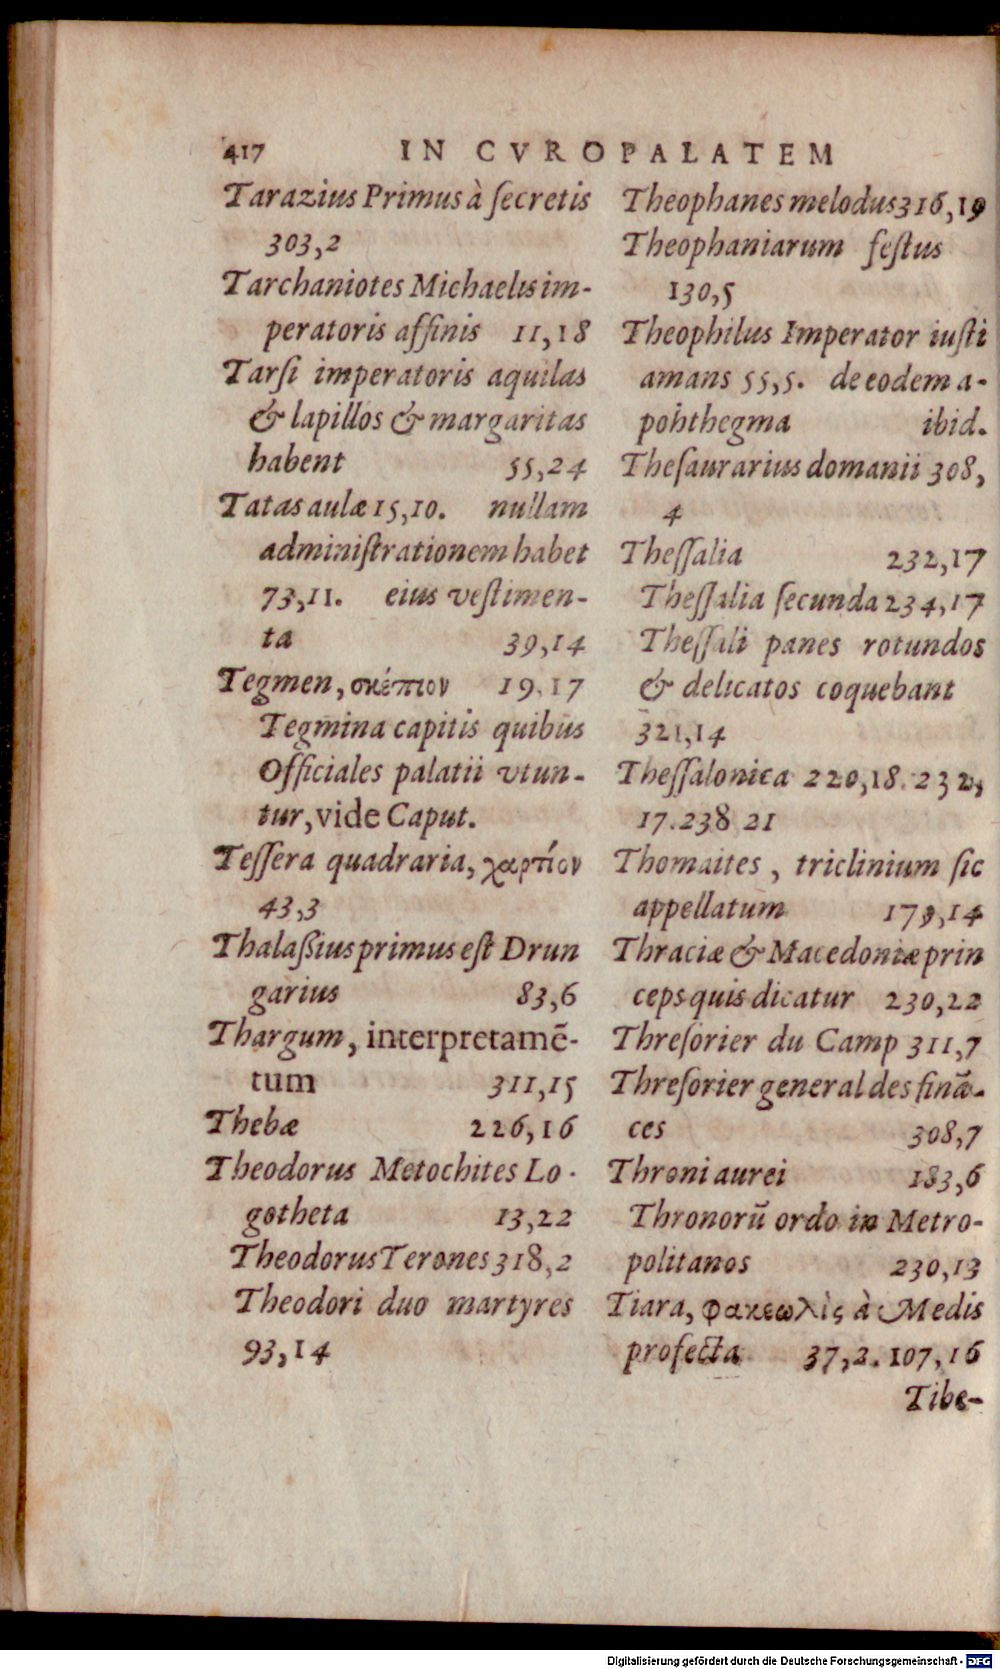 417 IN CVROPALATEM
Tarazius Primus à ſecretis
303,2
Tarchaniotes Michaelis im-
peratoris affinis 11,18
Tarſi imperatoris aquilas
& lapillos & margaritas
habent 55,24
Tatas aulæ 15,10. nullam
adminiſtrationem habet
73,11. eius veſtimen-
ta 39,14
Tegmen, σκέπιον 19,17
Tegmina capitis quibus
Officiales palatii vtun-
tur, vide Caput.
Teſſera quadraria, χαρτίον
43,3
Thalaßius primus eſt Drun
garius 83,6
Thargum, interpretamē-
tum 311,15
Thebæ 226,16
Theodorus Metochites Lo-
gotheta 13,22
Theodorus Terones 318,2
Theodori duo martyres
93,14
Theophanes melodus 316,19
Theophaniarum feſtus
130,5
Theophilus Imperator iuſti
amans 55,5. de eodem a-
pohthegma ibid.
Theſaurarius domanii 308,
4
Theſſalia 232,17
Theſſalia ſecunda 234,17
Theſſali panes rotundos
& delicatos coquebant
321,14
Theſſalonica 220,18. 232,
17. 238 21
Thomaites, triclinium ſic
appellatum 179,14
Thraciæ & Macedoniæ prin
ceps quis dicatur 230,22
Threſorier du Camp 311,7
Threſorier general des finā-
ces 308,7
Throni aurei 183,6
Thronorū ordo in Metro-
politanos 230,13
Tiara, φακεωλὶς à Medis
profecta 37,2. 107,16
Tibe-
Digitalisierung gefördert durch die Deutsche Forschungsgemeinschaft - DFG